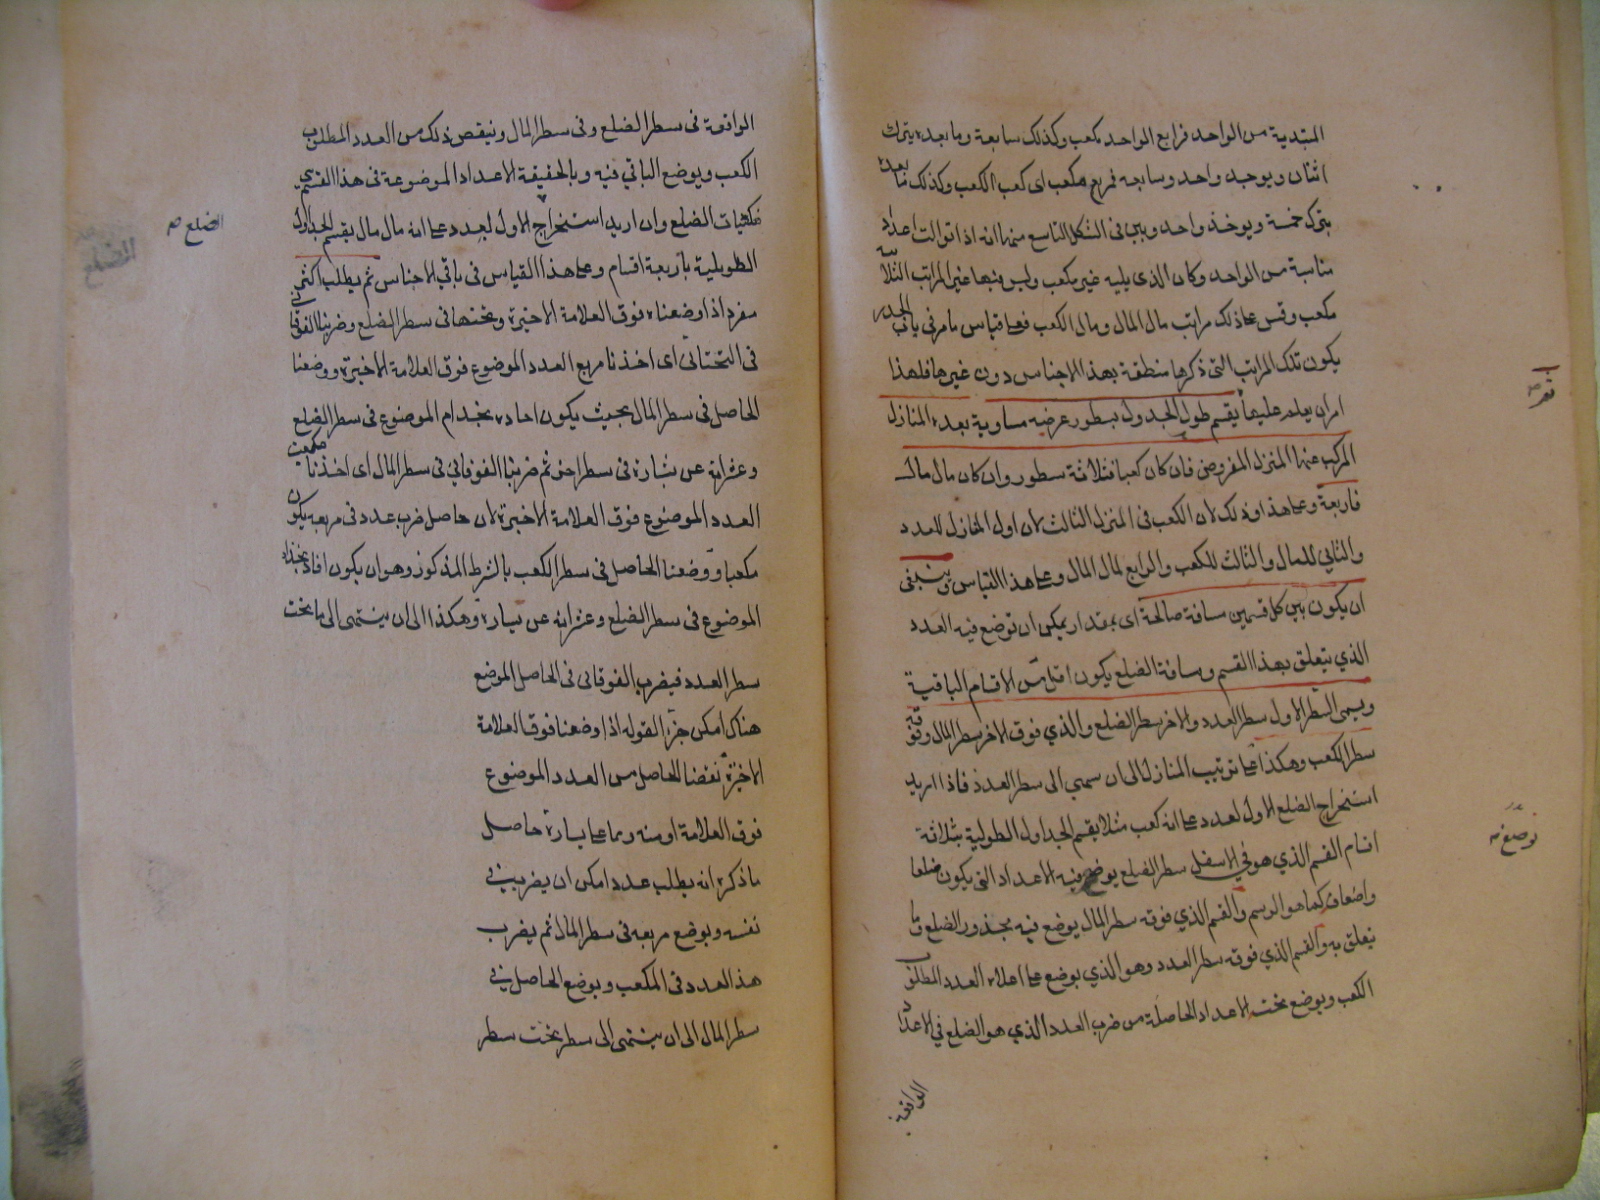 المبتدية من الواحد فرابع الواحد مكعب وكذلك سابعة وما بعده يترك
اثنان ويوجد واحد وسابعه فمربع مكعب اى كعب الكعب وكذلك ما بعده
يترك خمسة ويوخذ واحد وبين فى الشكل التاسع منها انه اذا توالت اعداد
متناسبة من الواحد وكان الذى يليه غير مكعب وليس فيها غير المراتب الثلاثة
مكعب وقس على ذلك مراتب مال المال ومال الكعب فعلى قياس ما مر فى باب الجذر
يكون تلك المراتب التى ذكرها منطقة بهذا الاجناس دون غيرها فلهذا
امر ان يعلم عليها يقسم طول الجدول بسطور عرضه مساوية بعده المنازل
المركب عنها المنزل المفروض فان كان كعبا فثلاثة سطور وان كان مال مال
فاربعة وعلى هذا وذلك لان الكعب فى المنزل الثالث لان اول المنازل للعدد
والثانى للمال والثالث للكعب والرابع لمال المال وعلى هذا القياس وينبغى
ان يكون بين كل قسمين مسافة صالحة اى بمقدار يمكن ان توضع فيه العدد
الذي يتعلق بهذا القسم ومسافة الضلع يكون اقل من الاقسام الباقية
ويسمى السطر الاول سطر العدد والاخر سطر الضلع والذي فوق الاخر سطر المال وفوقه
سطر الكعب وهكذا على ترتيب المنازل الى ان سمى الى سطر العدد فاذا اريد
استخراج الضلع الاول لعدد على انه كعب مثلا يقسم الجداول الطولية بثلاثة
اقسام القسم الذي هو فى الاسفل سطر الضلع يوضع فيه الاعداد التى يكون ضلعا
واضعاف كما هو الرسم والقسم الذي فوقه سطر المال يوضع فيه مجذور الضلع وما
يتعلق به والقسم الذي فوقه سطر العدد وهو الذي يوضع على اعلاه العدد المطلوب
الكعب ويوضع تحته الاعداد الحاصلة من ضرب العدد الذي هو الضلع في الاعداد
الواقعة
توضع صح
الواقعة فى سطر الضلع وفى سطر المال وينقص ذلك من العدد المطلوب
الكعب ويوضع الباقي فيه وبالحقيقة الاعداد الموضوعة فى هذا القسم هى
مكعبات الضلع وان اريد استخراج الاول لعدد على انه مال مال يقسم الجداول
الطويلية باربعة اقسام وعلى هذا القياس فى باقي الاجناس ثم يطلب اكثر
مفرد اذا وضعناه فوق العلامة الاخيرة وتحتها فى سطر الضلع وضربنا الفوقانى
فى التحتانى اى اخذنا مربع العدد الموضوع فوق العلامة الاخيرة ووضعنا
الحاصل فى سطر المال بحيث يكون احاده بحذاء الموضوع فى سطر الضلع
وعشراته عن يساره فى سطر اخر ثم ضربنا الفوقانى فى سطر المال اى اخذنا مكعب
العدد الموضوع فوق العلامة الاخيرة لان حاصل ضرب عدد فى مربعه يكون
مكعبا ووضعنا الحاصل فى سطر الكعب بالشرط المذكور وهو ان يكون احاده بحذاء
الموضوع فى سطر الضلع وعشراته عن يساره وهكذا الى ان ينتهى الى ما تحت
سطر العدد فيضرب الفوقانى فى الحاصل الموضع
هناك امكن جزاء لقوله اذا وضعنا فوق العلامة
الاخيرة نقصنا الحاصل من العدد الموضوع
فوق العلامة او منه ومما على يساره حاصل
ما ذكره انه يطلب عدد امكن ان يضرب فى
نفسه ويوضع مربعه فى سطر المال ثم يضرب
هذا العدد فى المكعب ويوضع الحاصل فى
سطر المال الى ان ينتهى الى سطر تحت سطر
الضلع صح